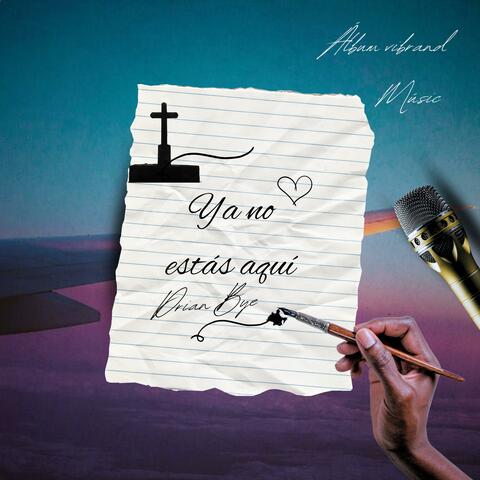 Álbum vibrand
Músic
Ya no
estás aquí
Drian Bye